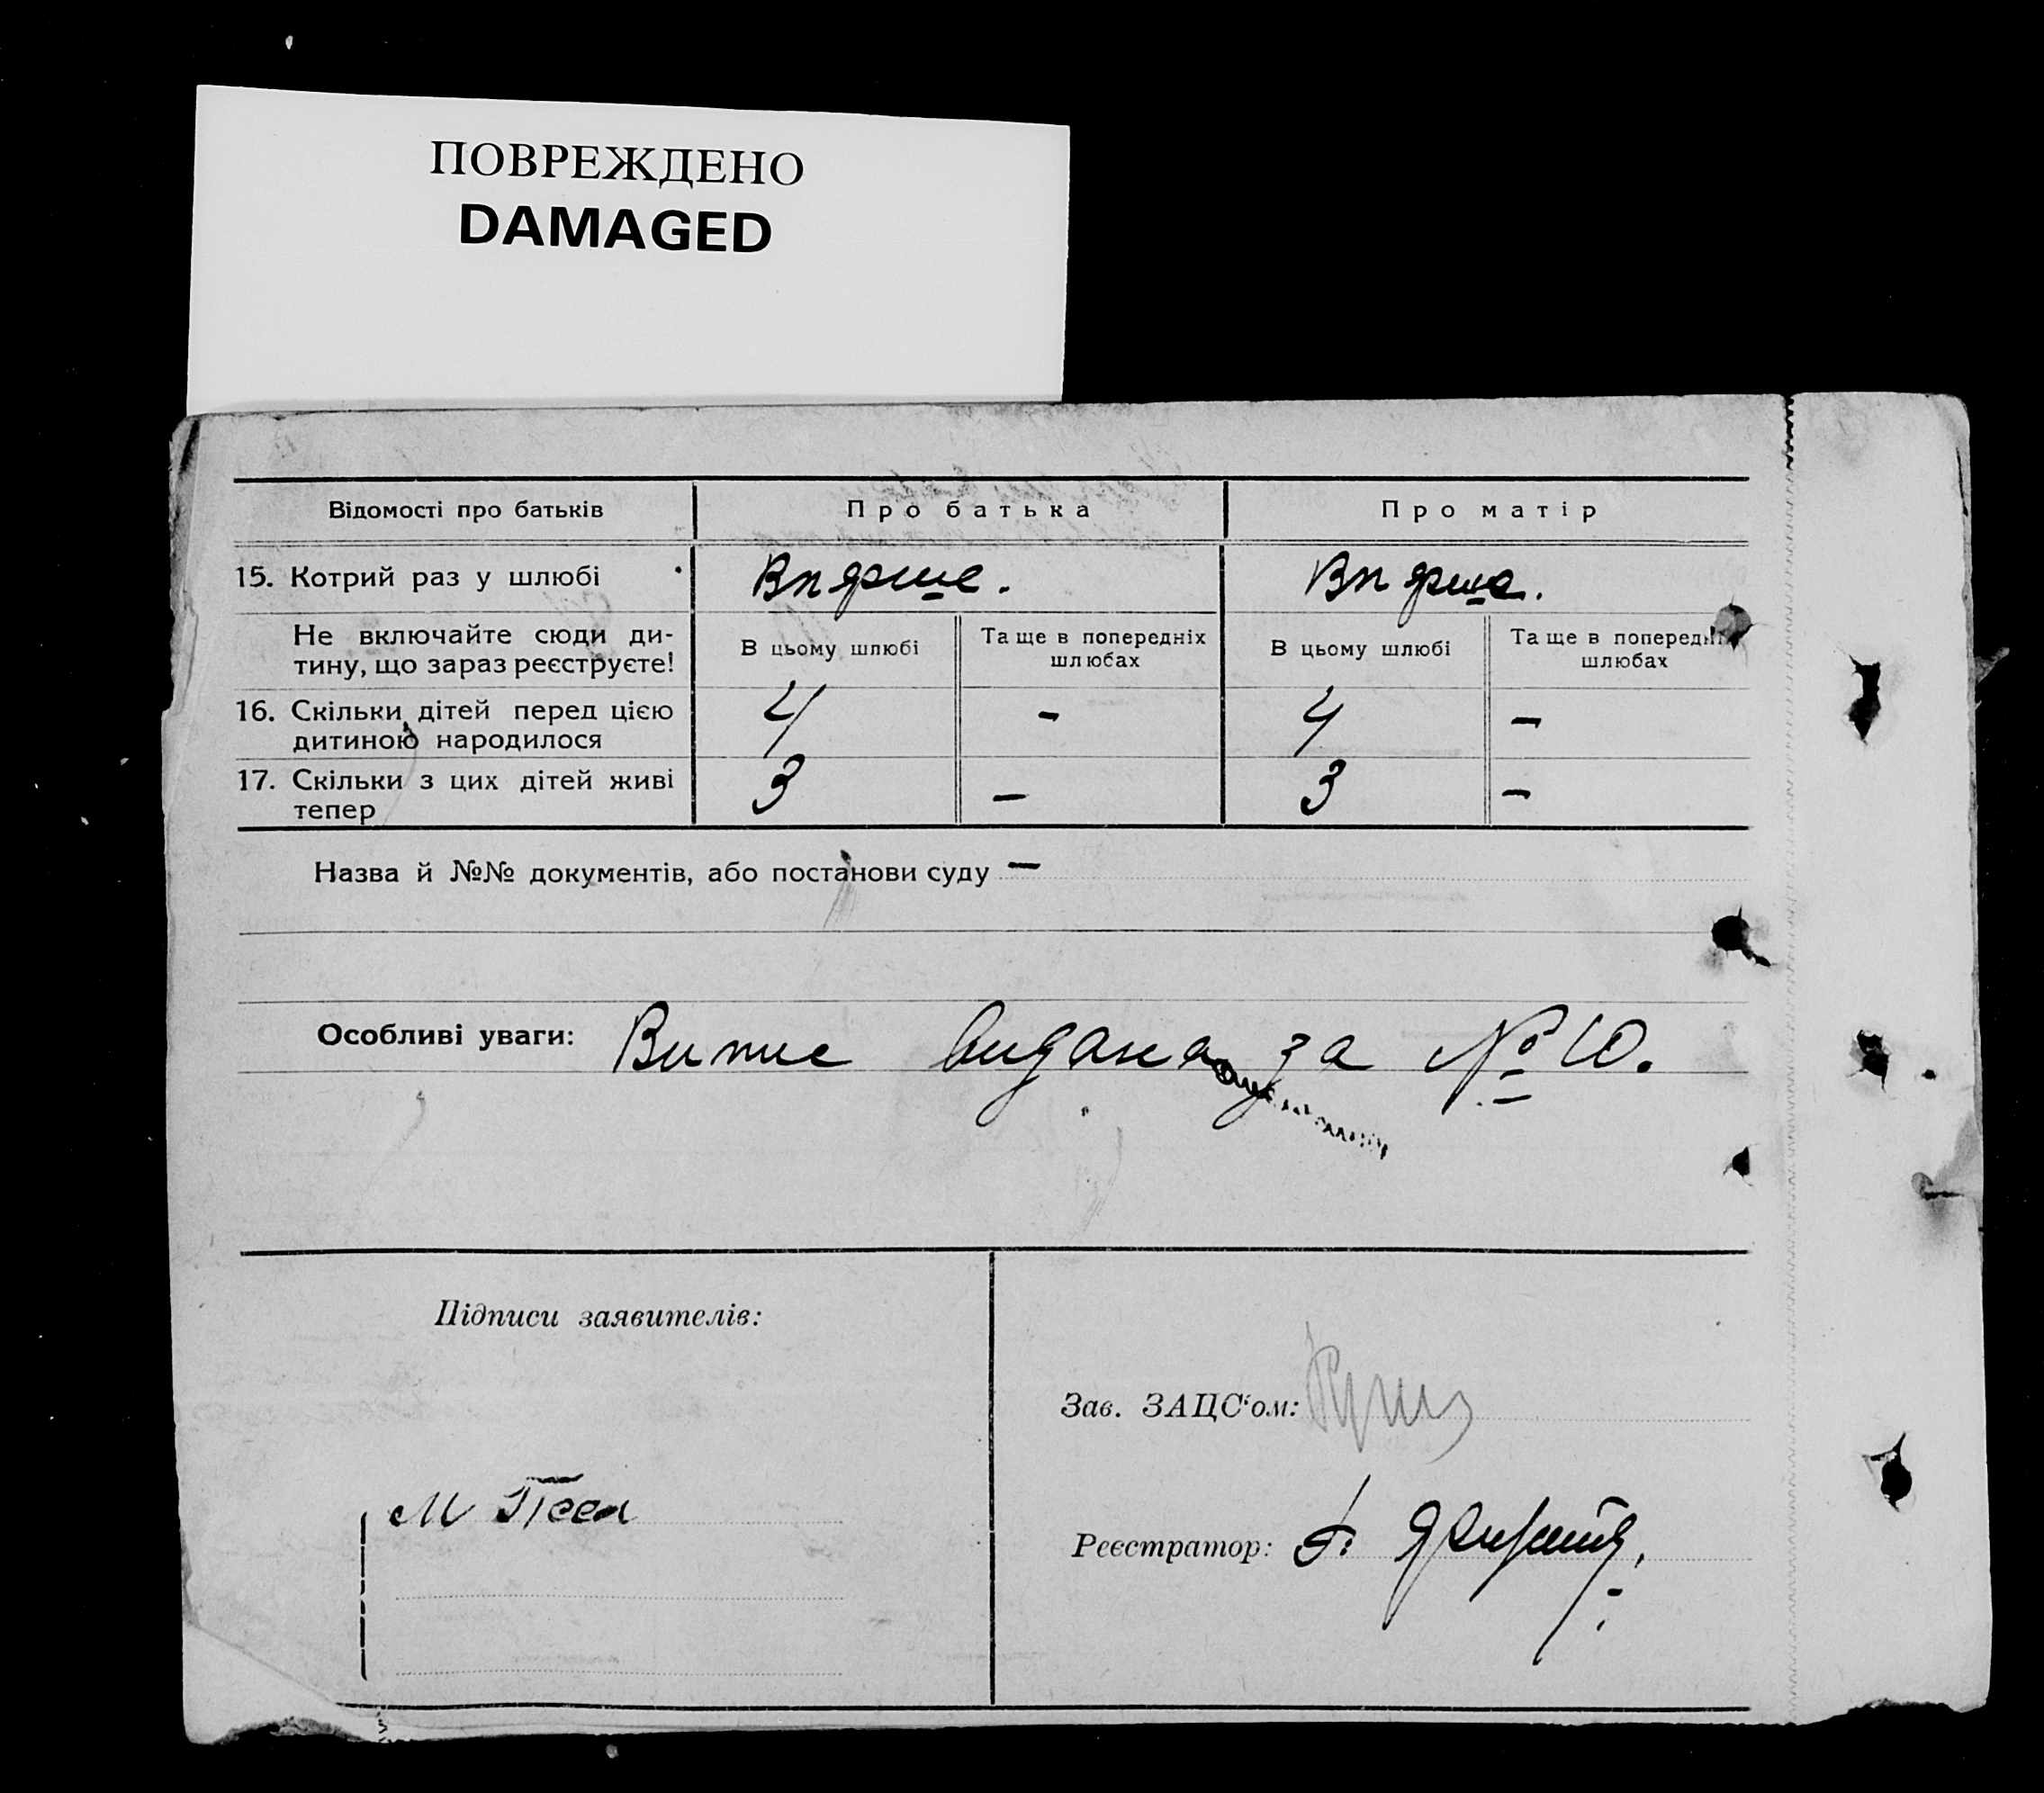 ПОВРЕЖДЕНО
DAMAGED
Відомості про батьків
Про батька
Про матір
15. Котрий раз у шлюбі
Вперше.
Вперше.
Не включайте сюди ди-
тину, що зараз реєструєте!
В цьому шлюбі
Та ще в попередніх
шлюбах
В цьому шлюбі
Та ще в попередніх
шлюбах
16. Скільки дітей перед цією
дитиною народилося
4
-
4
-
17. Скільки з цих дітей живі
тепер
3
-
3
-
Назва й №№ документів, або постанови суду -
Особливі уваги: Випис видана за № 10.
Підписи заявителів:
Зав. ЗАЦС'ом:
М
Реєстратор: